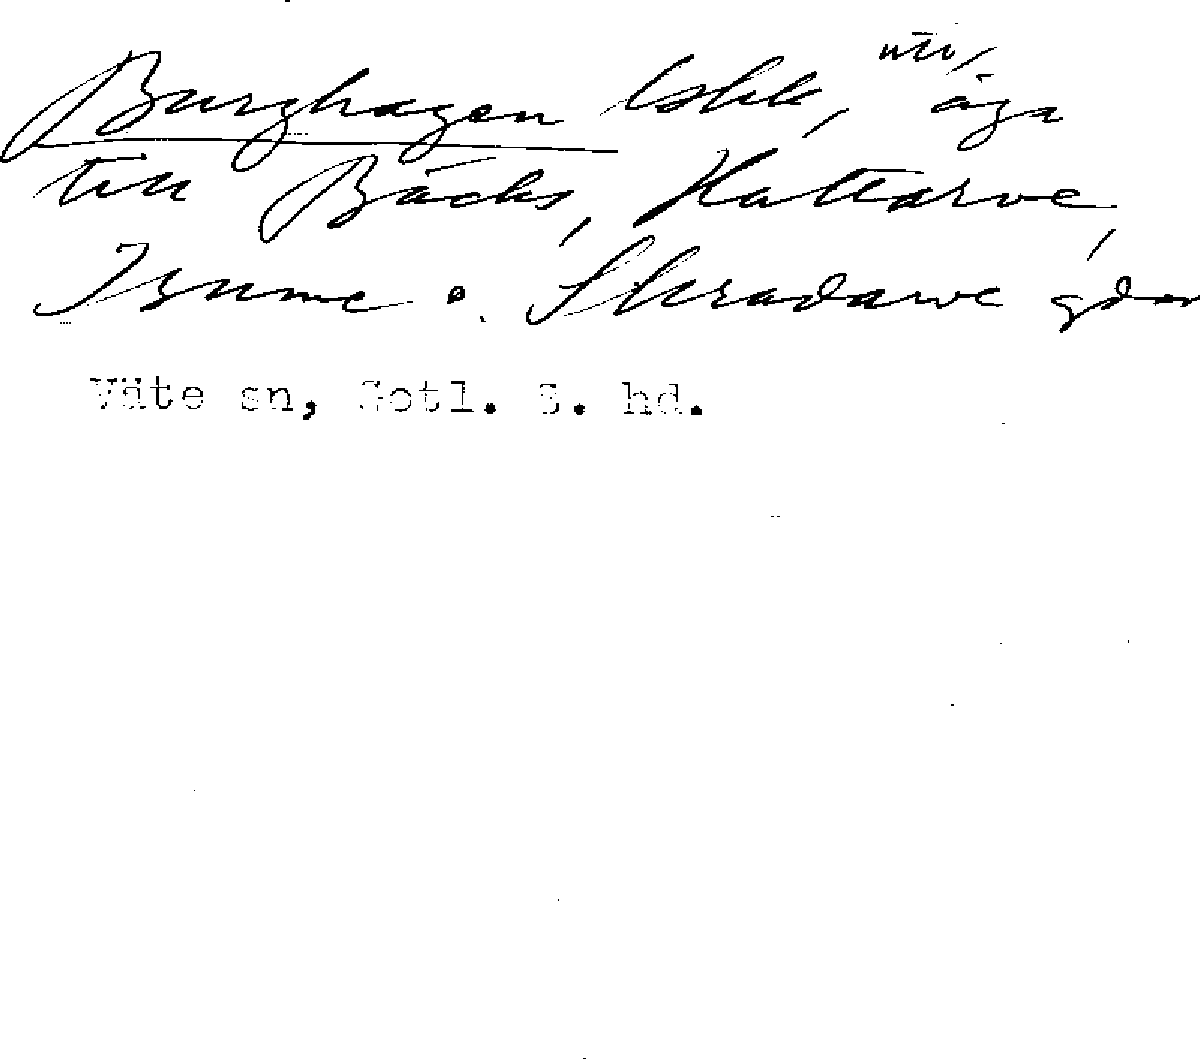 Burghagen lskk, utv, äga
till Bäcks, Hattarve,
Isume o. Skradarve gdar
Väte sn, Gotl. S. hd.